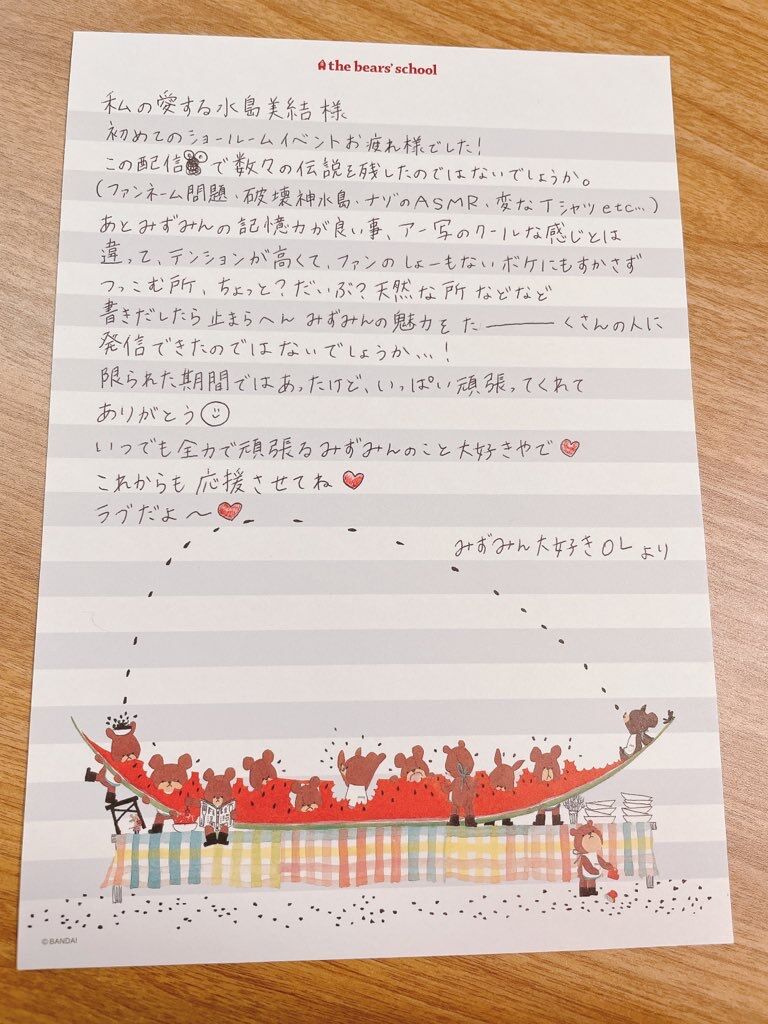 the bears' school
私の愛する水島美結様
初めてのショールームイベントお疲れ様でした!
この配信で数々の伝説を残したのではないでしょうか。
(ファンネーム問題・破壊神水島・ナゾのASMR、変なTシャツetc…)
あとみずみんの記憶力が良い事、アー写のクールな感じとは
違って、テンションが高くて、ファンのしょーもないボケにもすかさず
つっこむ所、ちょっと?だいぶ?天然な所などなど
書きだしたら止まらへんみずみんの魅力をた――くさんの人に
発信できたのではないでしょうか…!
限られた期間ではあったけど、いっぱい頑張ってくれて
ありがとう☺
いつでも全力で頑張るみずみんのこと大好きやで♥
これからも応援させてね♥
ラブだよ〜♥
みずみん大好きOLより
©BANDAI